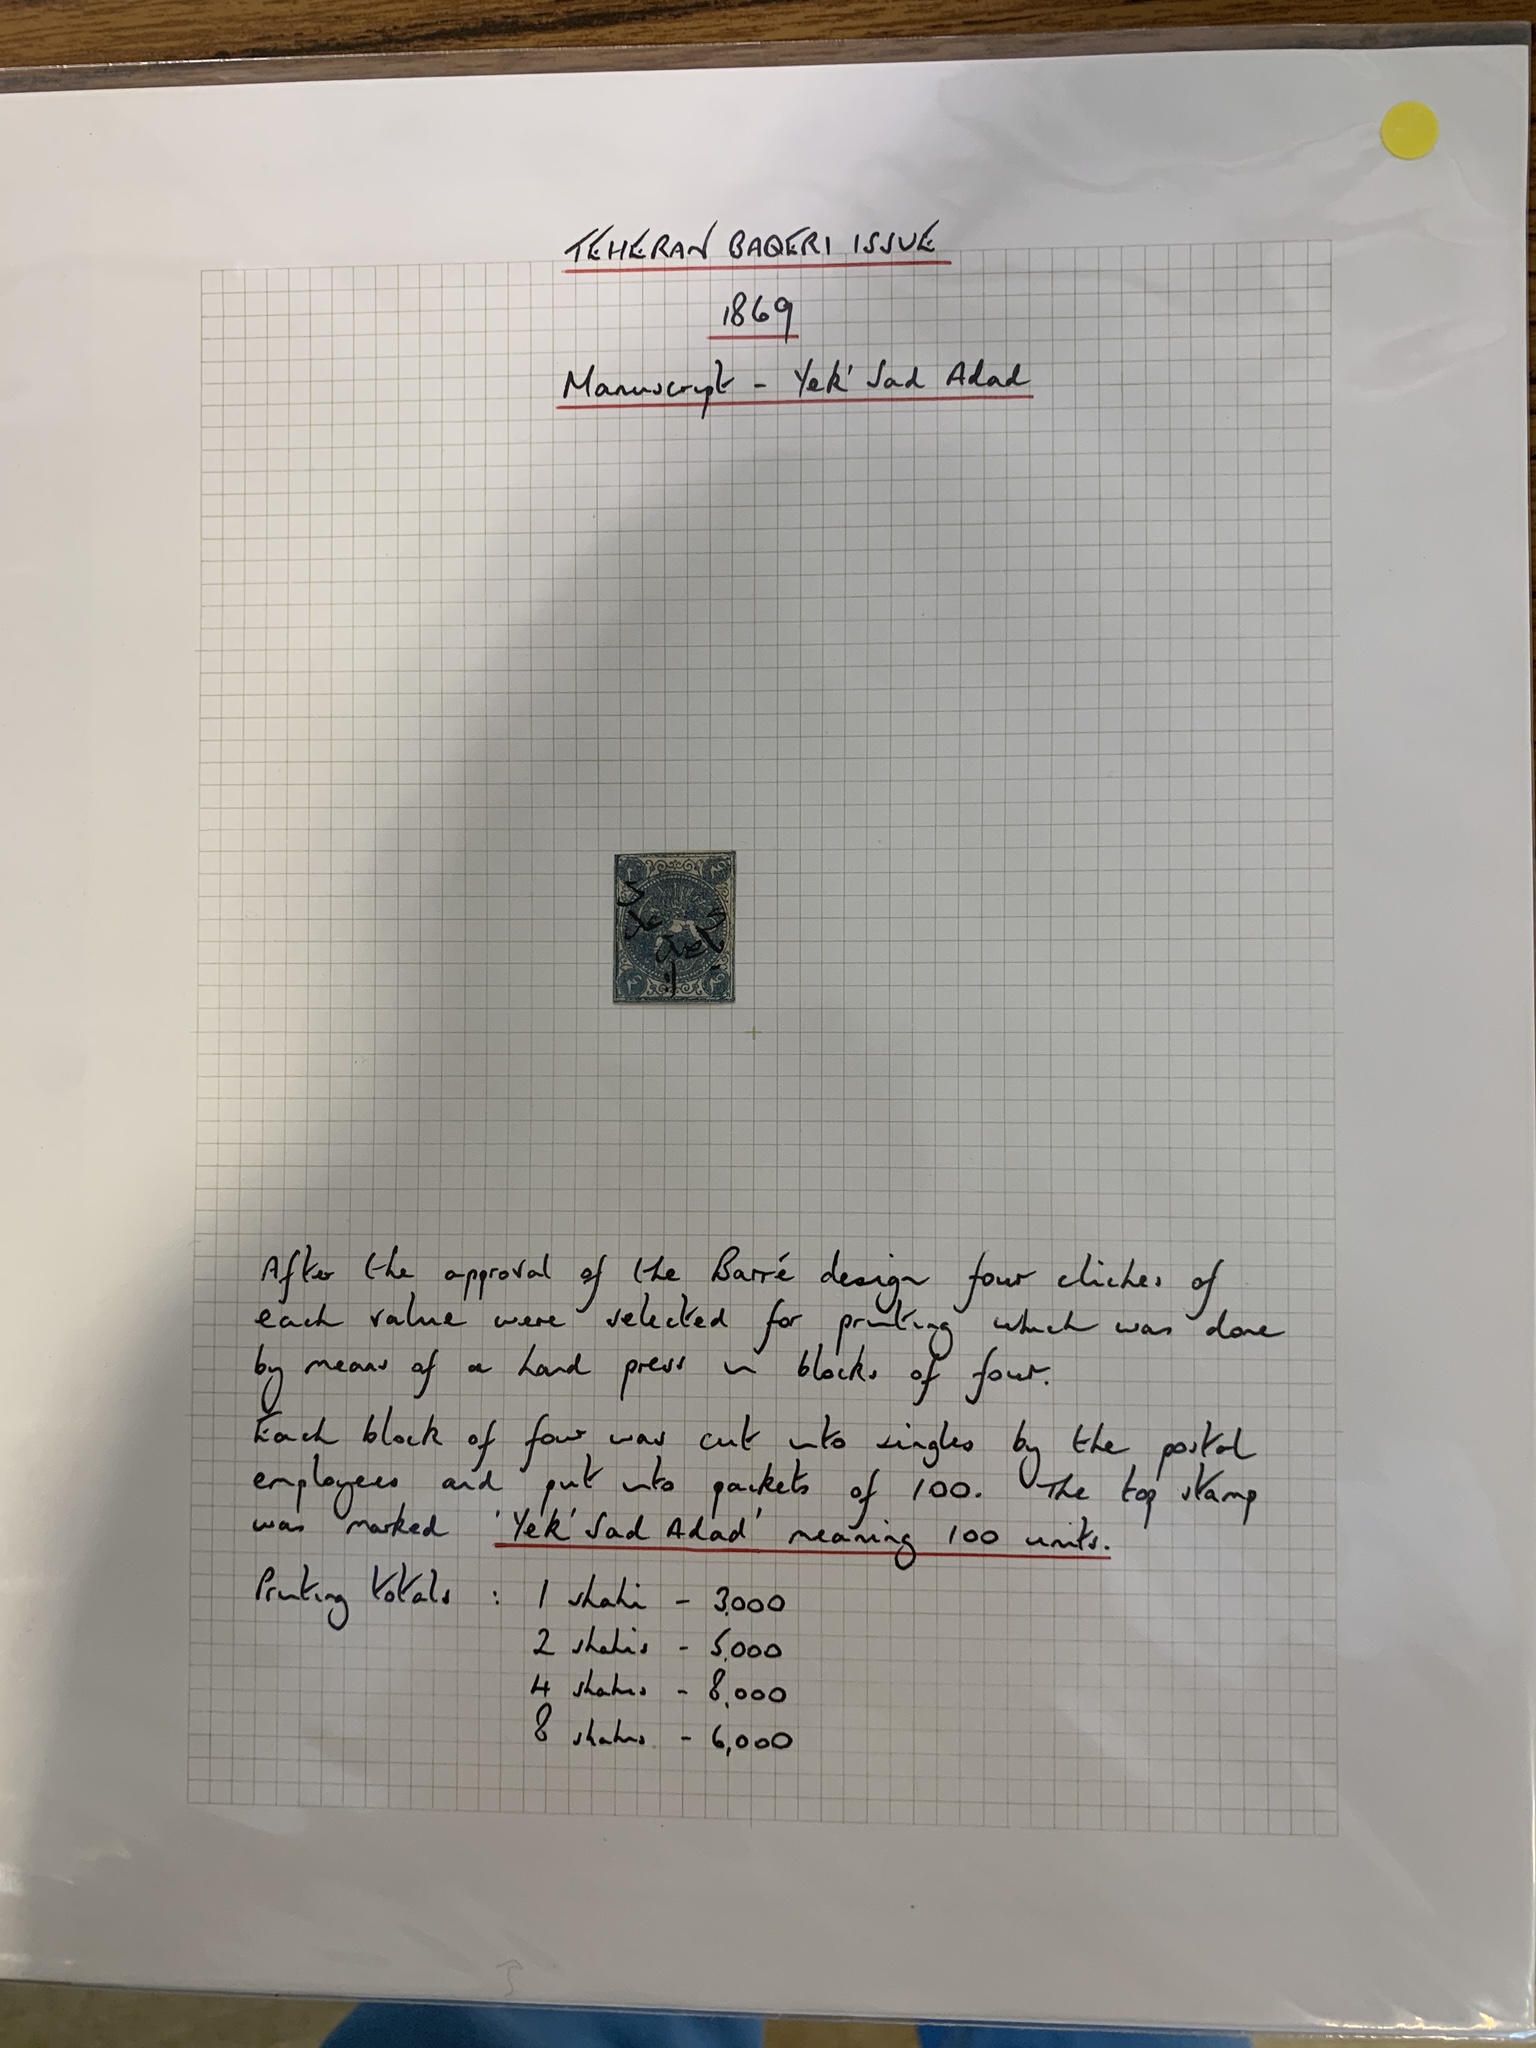 TEHERAN BAQERI ISSUE
1869
Manuscript - Yek' Sad Adad
After the approval of the Barré design four cliches of
each value were selected for printing which was done
by means of a hand press in blocks of four.
Each block of four was cut into singles by the postal
employees and put into packets of 100. The top stamp
was marked 'Yek' Sad Adad' meaning 100 units.
Printing totals : 1 shahi - 3,000
2 shahis - 5,000
4 shahis - 8,000
8 shahis - 6,000